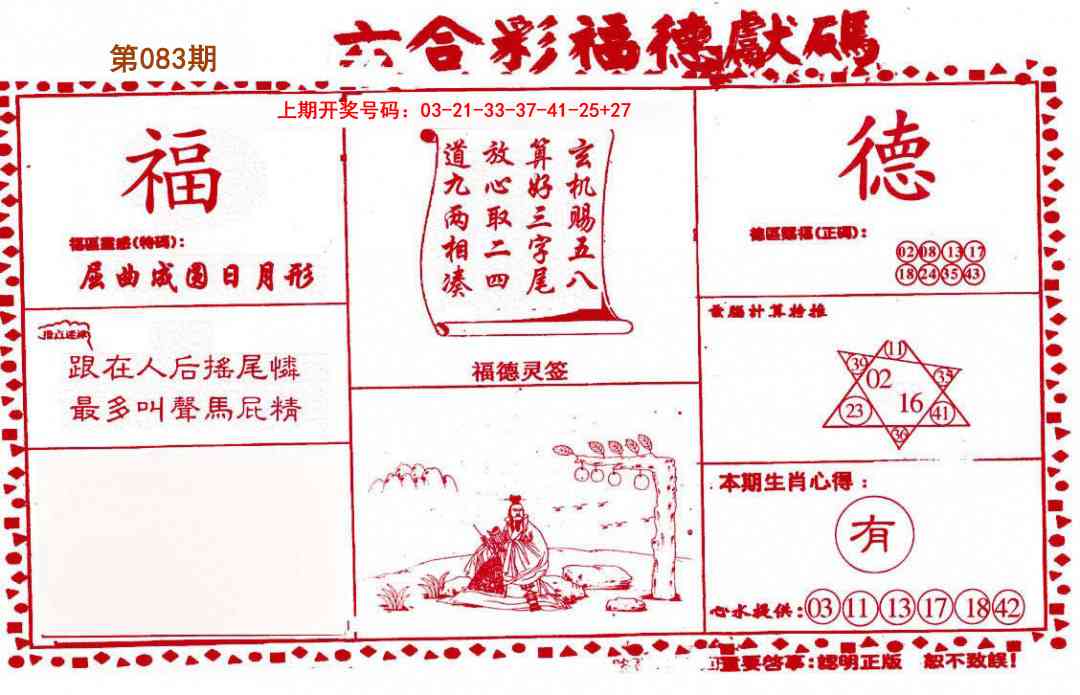 第083期
六合彩福德獻碼
上期开奖号码：03-21-33-37-41-25+27
福
福區靈感(特碼)：
屈曲成圆日月形
跟在人后摇尾憐
最多叫聲馬屁精
玄机赐五八
算好三字尾
放心取二四
道九两相凑
福德灵签
德
德區賜福(正碼)：
02 08 13 17
18 24 35 43
電腦計算特推
11
39 02 35
23 16 41
36
本期生肖心得：
有
心水提供：03 11 13 17 18 42
重要啓事：認明正版 恕不致誤！